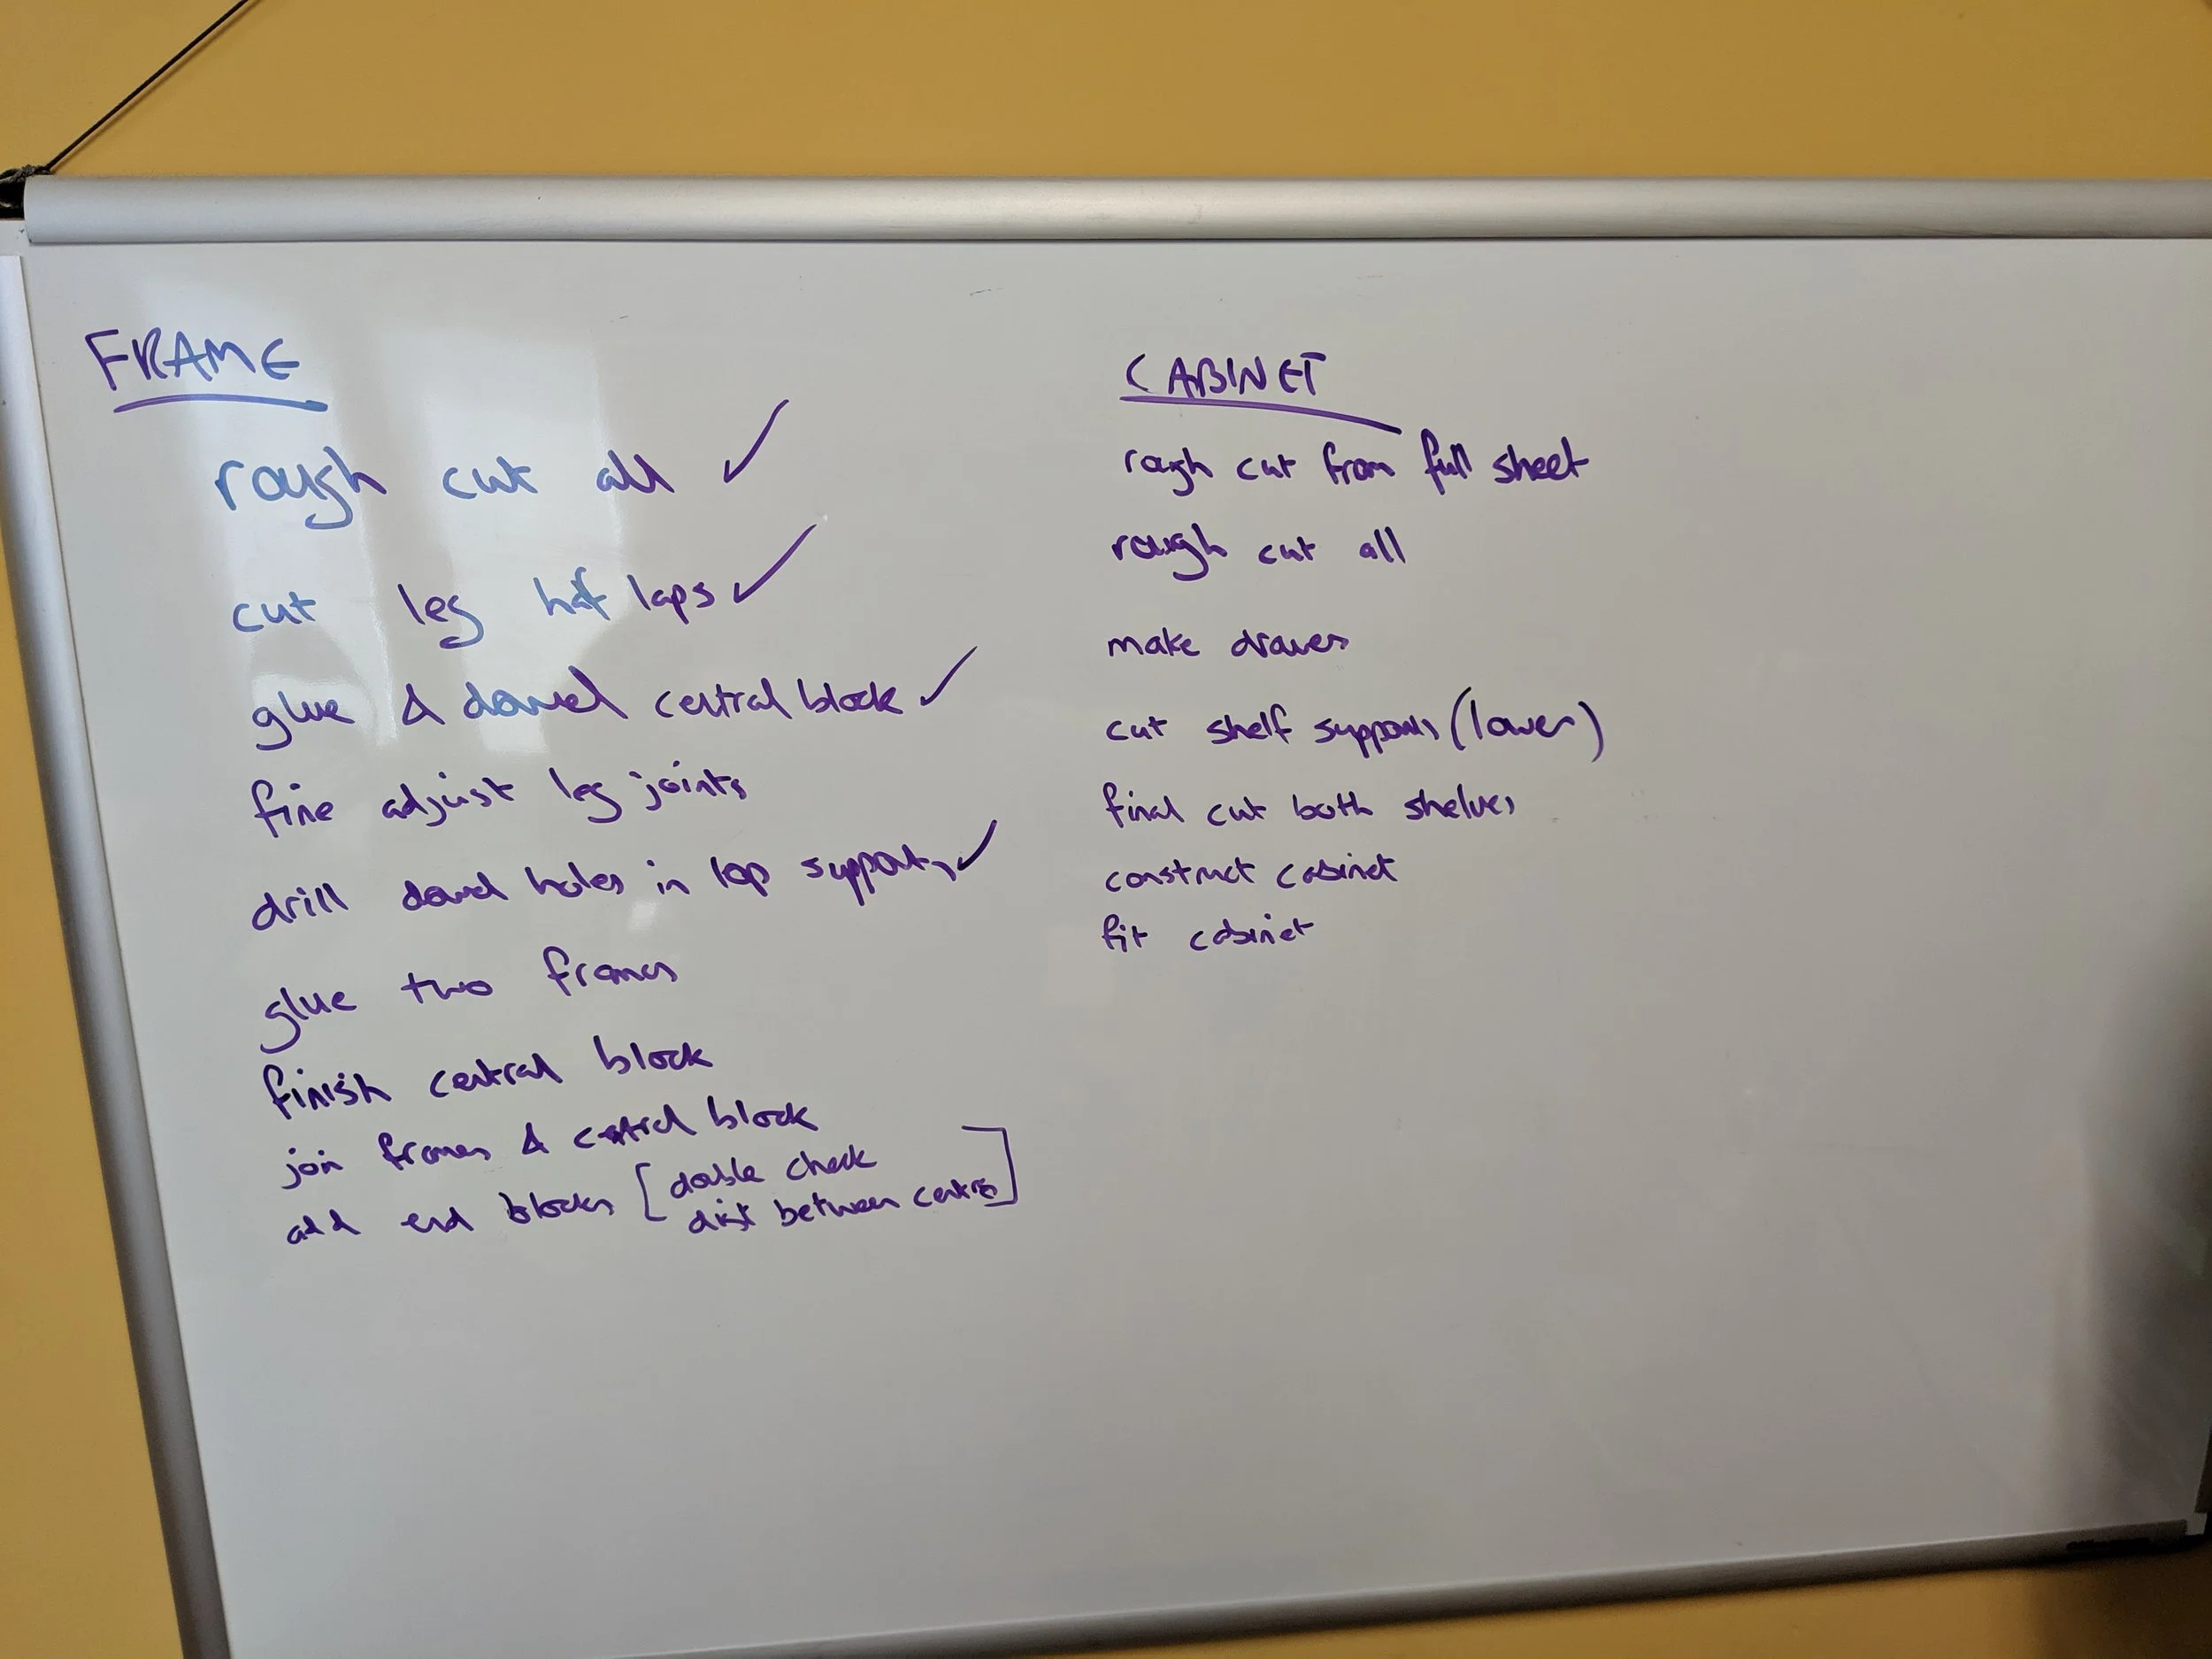 FRAME
rough cut all ✓
cut leg half laps ✓
glue & dowel central block ✓
fine adjust leg joints
drill dowel holes in top supports ✓
glue two frames
finish central block
join frames & central block
add end blocks [double check
dist between centres]
CABINET
rough cut from full sheet
rough cut all
make drawer
cut shelf supports (lower)
final cut both shelves
construct cabinet
fit cabinet